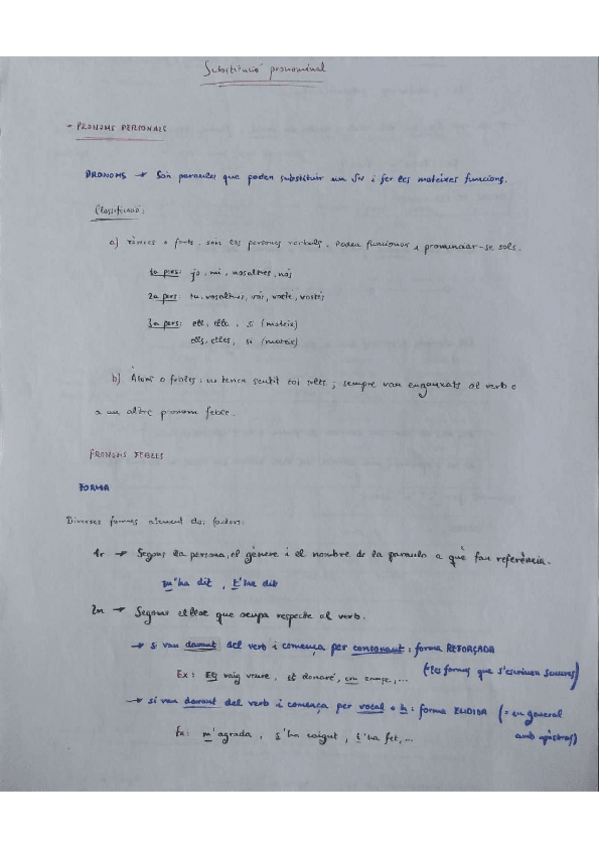 Substitució pronominal
- PRONOMS PERSONALS
PRONOMS → Són paraules que poden substituir un SN i fer les mateixes funcions.
Classificació:
a) Tòniques o forts: són les persones verbals. Poden funcionar i pronunciar-se sols.
1a pers: jo, mi, nosaltres, nós
2a pers: tu, vosaltres, vós, vostè, vostès
3a pers: ell, ella, si (mateix)
ells, elles, si (mateix)
b) Àtons o febles: no tenen sentit tot soles; sempre van enganxats al verb o
a un altre pronom feble.
PRONOMS FEBLES
FORMA
Diverses formes atenent dos factors:
1r → Segons la persona, el gènere i el nombre de la paraula a què fan referència.
m'ha dit, t'he dit
2n → Segons el lloc que ocupa respecte al verb.
→ si van davant del verb i comença per consonant: forma REFORÇADA
(+les formes que s'escriuen senceres)
Ex: Et vaig veure, et donaré, em
→ si van davant del verb i comença per vocal o h: forma ELIDIDA (= en general
amb apòstrof)
Ex: m'agrada, s'ha caigut, t'ha fet,...